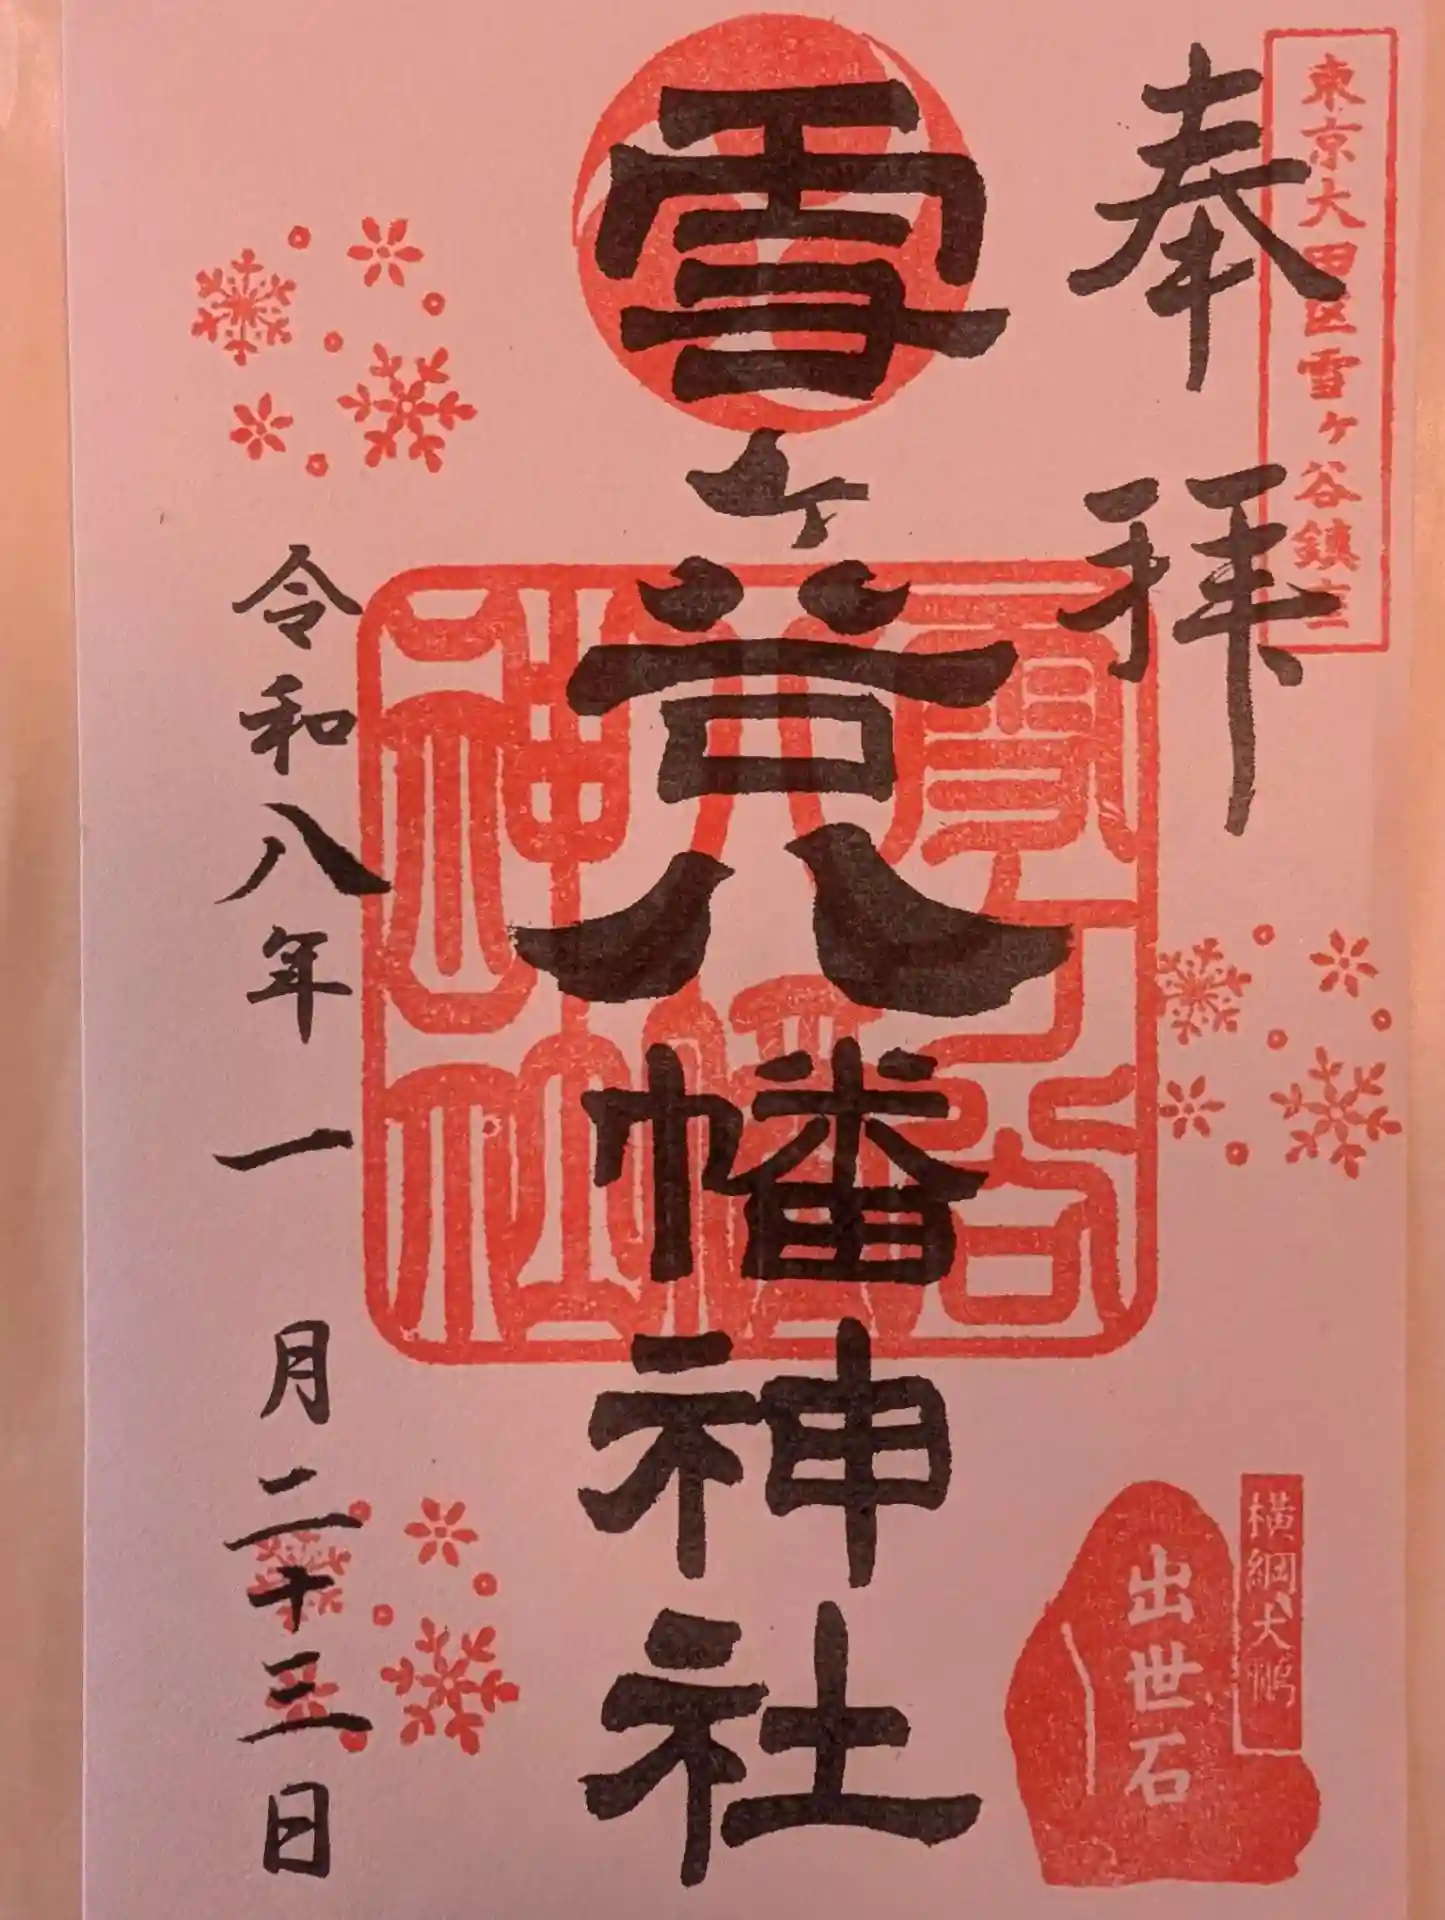 東京大田区雪ヶ谷鎮主
奉拝
雪ヶ谷八幡神社
雪ヶ谷
八幡
神社
令和八年一月二十三日
横綱大鵬
出世石